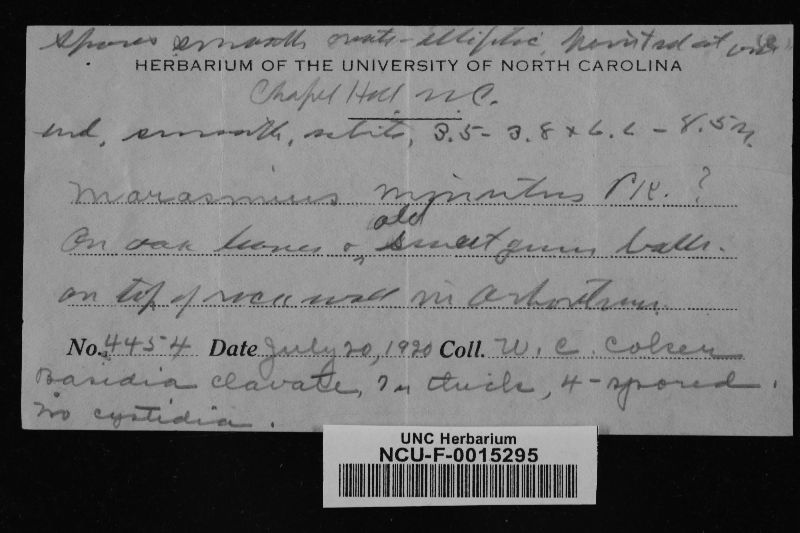 Spores smooth ovate-elliptic, pointed at one
HERBARIUM OF THE UNIVERSITY OF NORTH CAROLINA
Chapel Hill N.C.
end, smooth, white, 3.5-3.8 x 6.6-8.5 µ.
Marasmius minutus Pk. ?
On oak leaves & old sweet gum balls.
on top of rock wall in Arboretum.
No. 4454 Date July 20, 1920 Coll. W. C. Coker
Basidia clavate, 7µ thick, 4-spored.
No cystidia.
UNC Herbarium
NCU-F-0015295